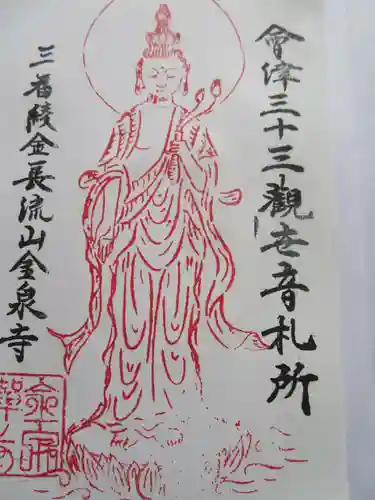 會津三十三観世音札所
三番綾金長流山金泉寺